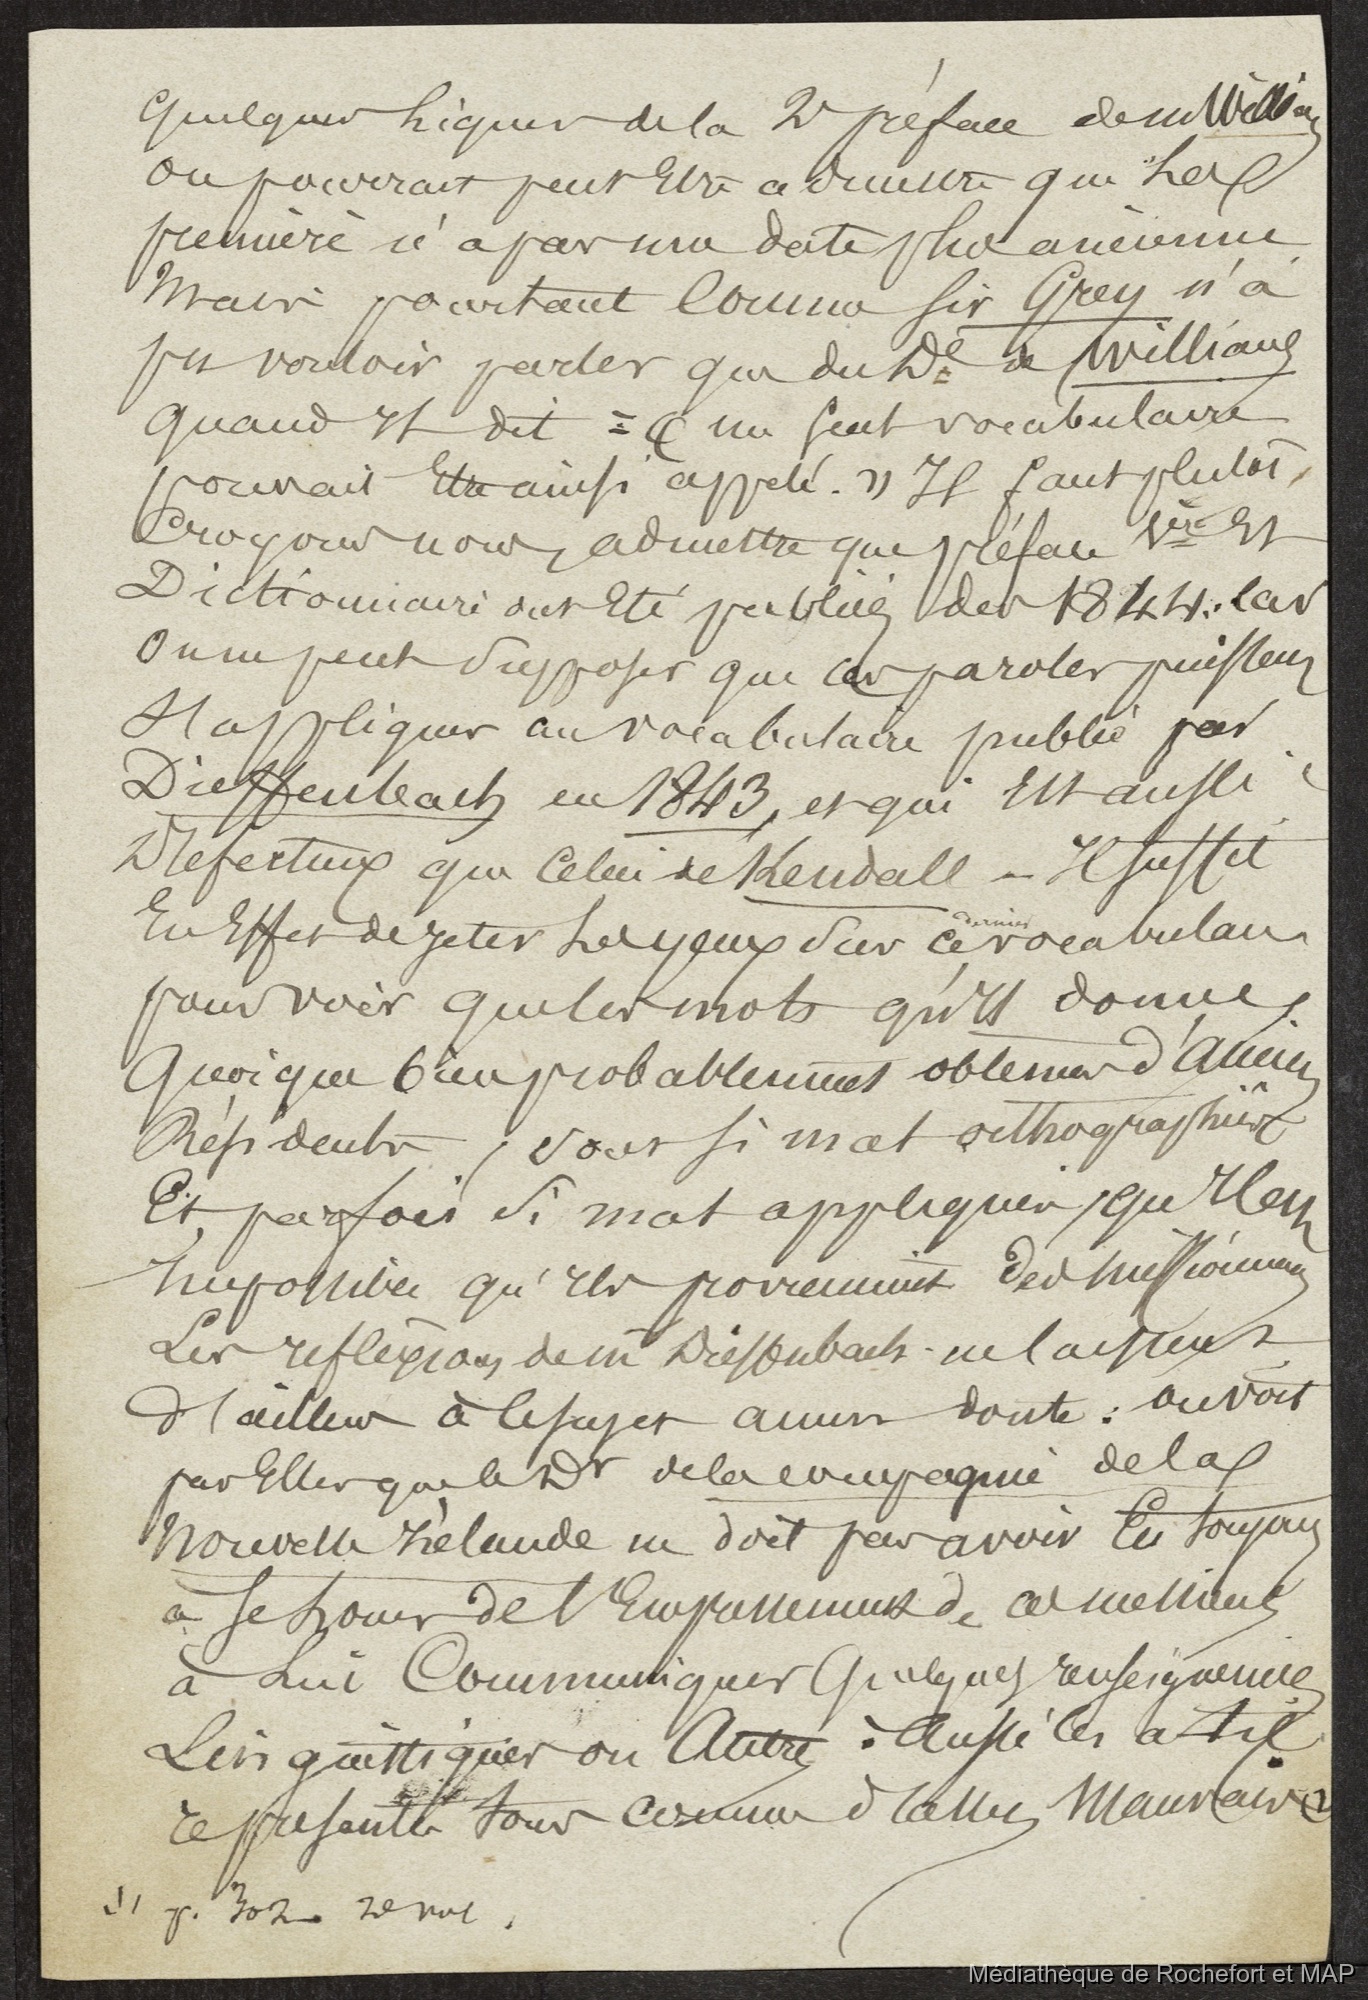 Quelques lignes de la 2e préface de m William
on pourrait peut Etre admettre que La
première n'a pas une date plus ancienne
Mais pourtant Comme Sir Grey n'a
pu vouloir parler que du De de Williams
quand Il dit = « un seul vocabulaire
pouvait Etre ainsi appelé. » Il faut plutôt,
Croyons nous, admettre que préface 1ère Et
Dictionnaire ont Eté publiés des 1844. Car
on ne peut Supposer que Ces paroles puissent
s'appliquer au vocabulaire publié par
Dieffenbach en 1843, et qui Est aussi
Défectueux que Celui de Kendall – Il suffit
En Effet de jeter Les yeux Sur ce dernier vocabulaire
pour voir que les mots qu'Il donne,
Quoique bien probablement obtenus d'Anciens
Résidents, sont si mal orthographiés
Et parfois si mal appliqués, qu'Il est
Impossible qu'Ils proviennent des missionnaires
Les reflexions de m Dieffenbach ne laissent
d'ailleurs à le sujet aucun doute : on voit
par Elles que le Dr de la compagnie de la
Nouvelle Zélande ne doit pas avoir Eu toujours
à se louer de l'Empressement de ces messieurs
à Lui Communiquer Quelques renseignements
Linguistiques ou Autres : Aussi les a t il
représentés tous comme d'assez Mauvais (1)
(1) p. 302 2e vol.
Médiathèque de Rochefort et MAP